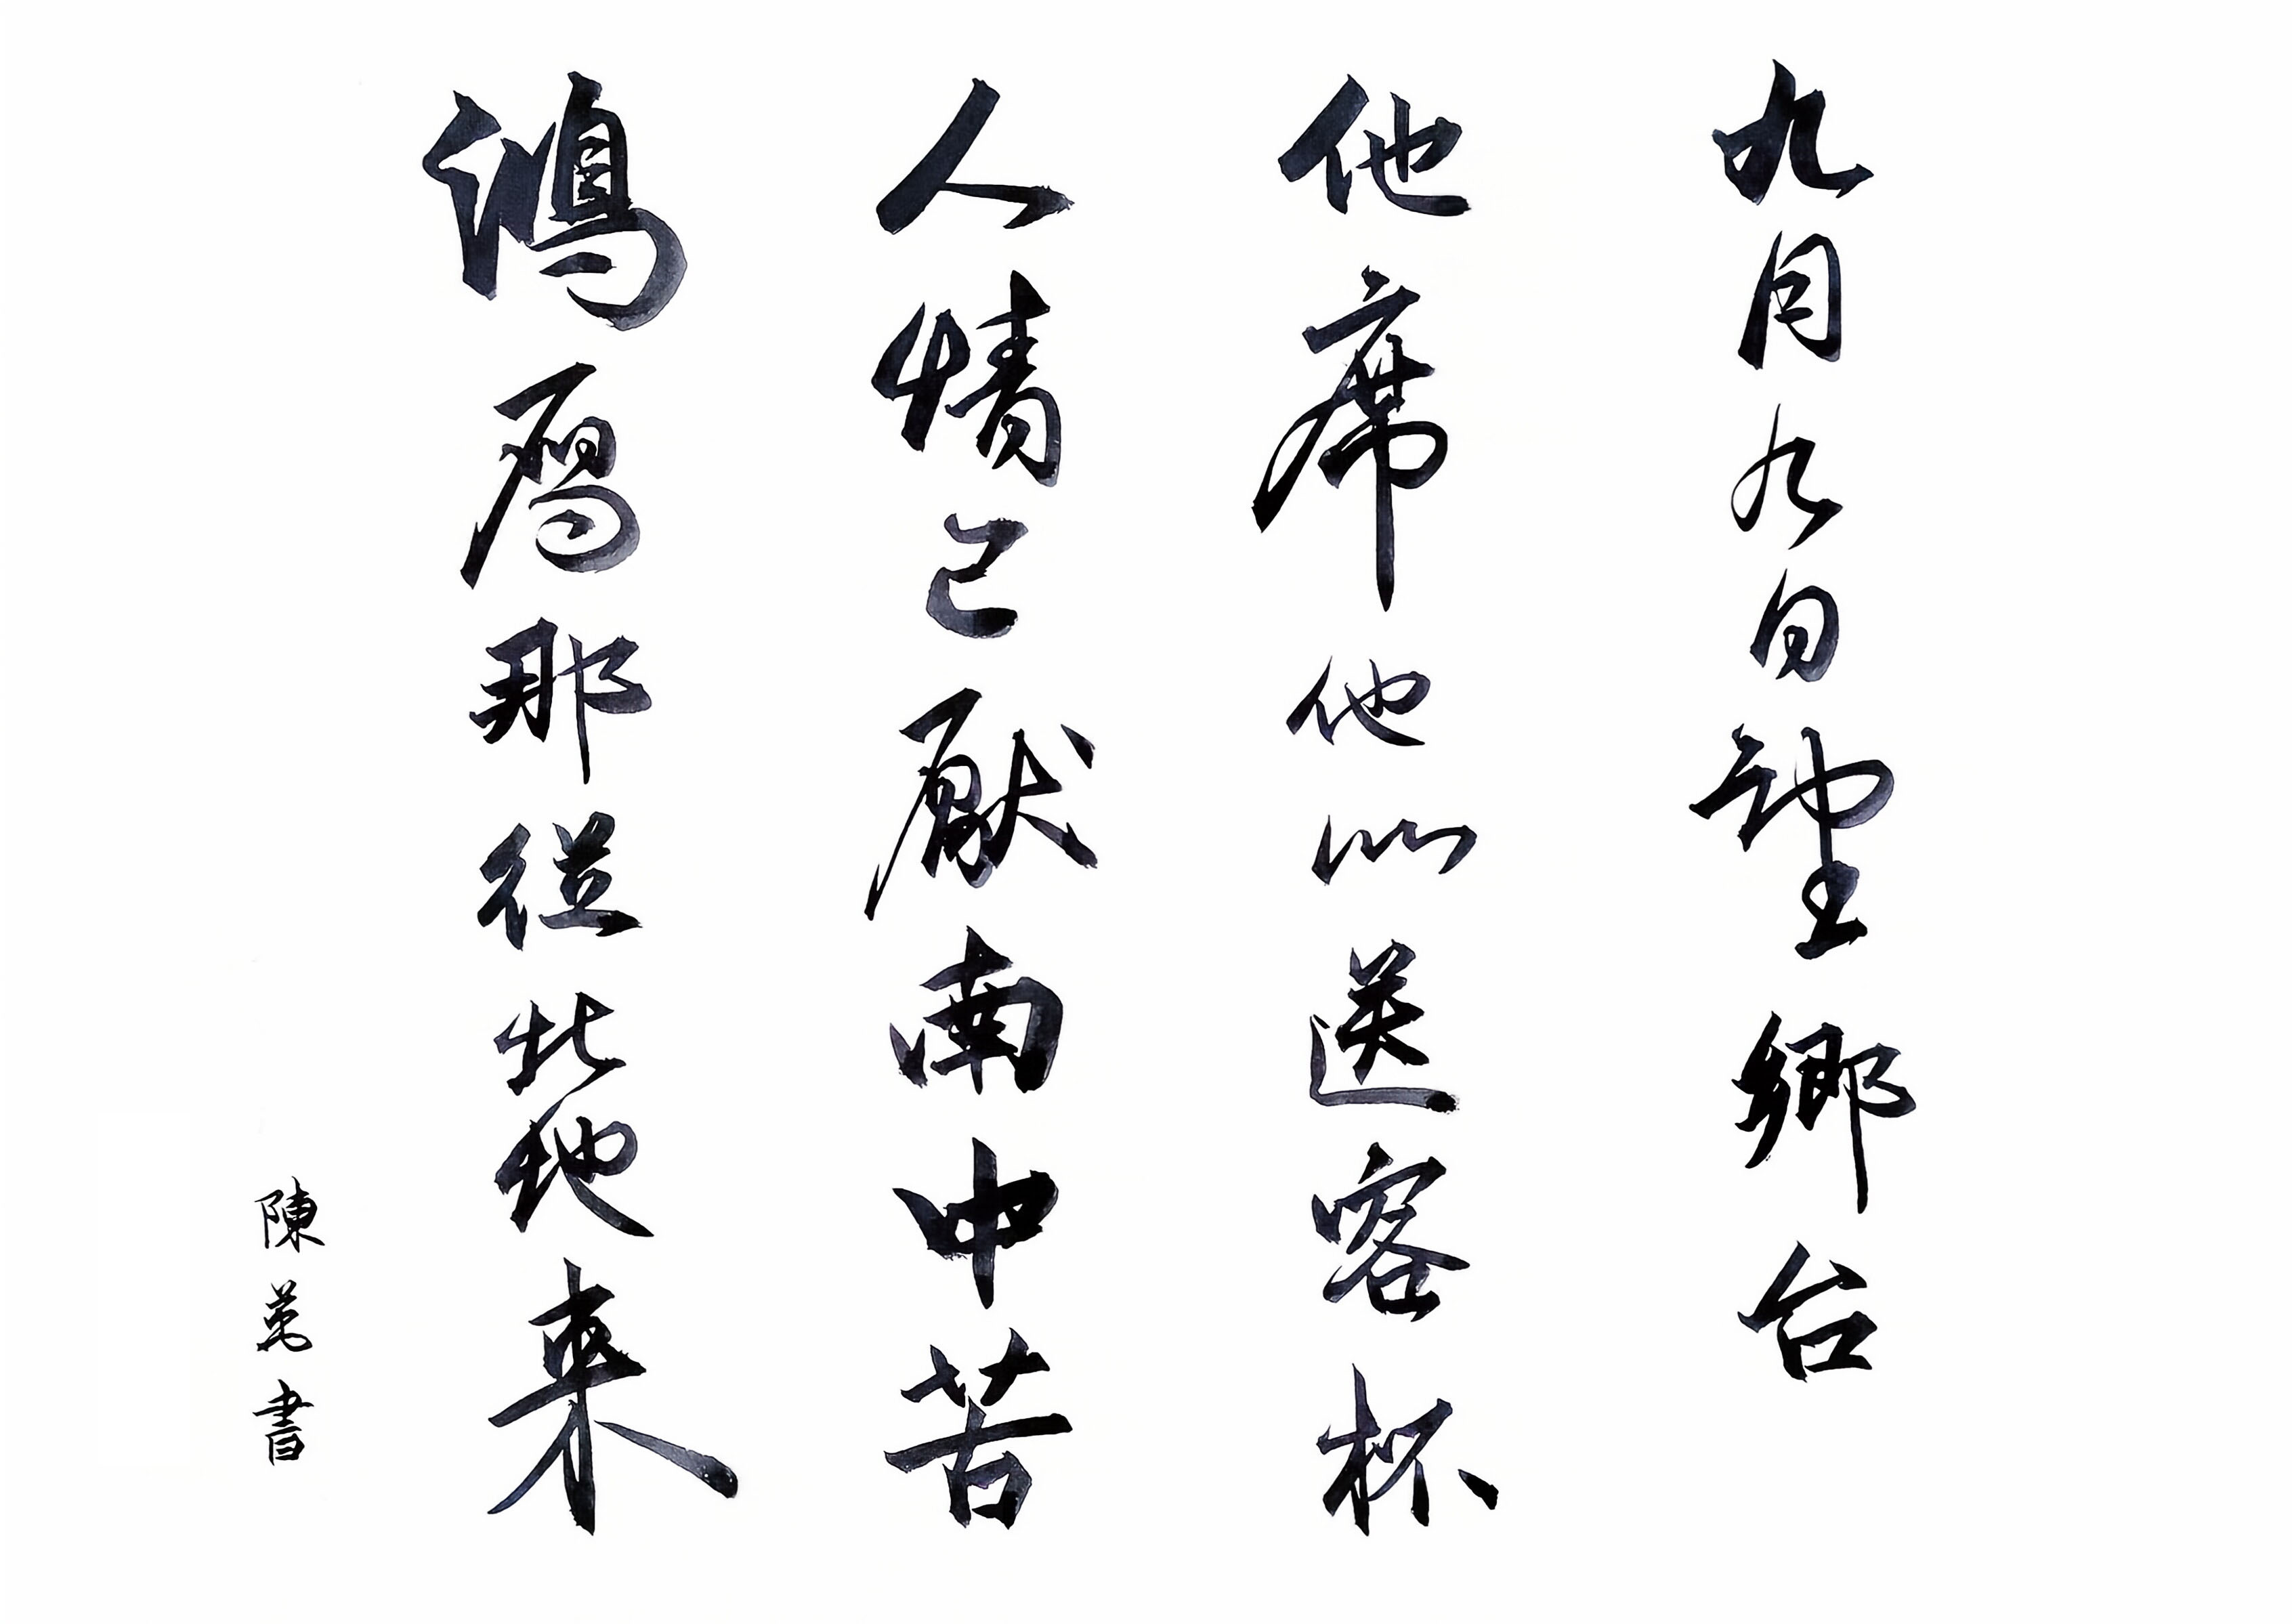 九月九日望鄉台
他席他鄉送客杯
人情已厭南中苦
鴻鴈那從北地來
陳書